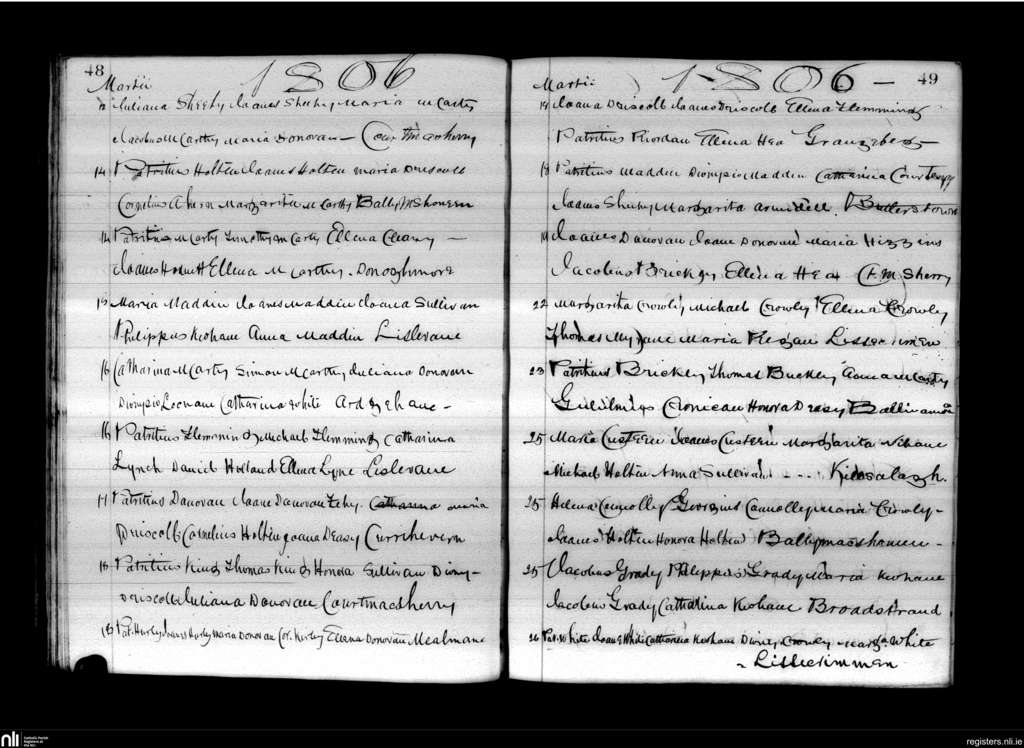 48
1806
Martii
12 Juliana Sheehy Joanes Sheehy Maria McCarty
Jacobus McCarthy Maria Donovan —
14 Patritius Holten Joanes Holten Maria Driscoll
Cornelius Ahern Margarita McCarthy
14 Patritius McCarty Timothy McCarty Ellena Cleary —
Joanes Ellena McCarthy. Donoghmore
15 Maria Maddin Joanes Maddin Joana Sullivan
Philippus Keohane Anna Maddin Lislevane
16 Catharina McCarty Simon McCarthy Juliana Donovan
Dionysio Leonane Catharina White Ardgehane -
16 Patritius Flemming Michael Flemming Catharina
Lynch David Holland Ellena Lyne Lislevane
17 Patritius Donovan Joane Donovan Fehy. Catharina Maria
Driscoll Cornelius Holten Joana Deasy Currchevern
18 Patritius King Thomas King Honora Sullivan Diony-
Driscoll Juliana Donovan Courtmacsherry
18 Pat. Hurly Joanes Hurly Maria Donovan Cor. Hurley Ellena Donovan Mealmane
1806 — 49
Martii
19 Joana Driscoll Joanes Driscoll Ellena Flemming
Patritius Riordan Ellena Hea
18 Patritius Maddin Dionysio Maddin Catharina
Joanes Sheehy Margarita Butlerstown
19 Joanes Donovan Joane Donovan Maria Higgins
Jacobus Brickley Ellena Hea Ct. McSherry
22 Margarita Crowley Michael Crowley Ellena Crowley
Thomas Maria Regan
23 Patritius Brickley Thomas Buckley Anna McCarty
Gulielmus Cronican Honora Deasy
25 Maria Custerin Joanes Custerin Margarita
Michael Holten Anna Sullivan - - - Kilsalagh.
25 Helena Connolley Georgius Connolley Maria Crowly -
Joanes Holten Honora Holten Ballymasshonen -
25 Jacobus Grady Philippus Grady Maria Keohane
Jacobus Grady Catharina Keohane Broadstrand
26 Pat. White Joane White Catharina Keohane Diony. Marga. White
- Lisleerimmen
nli
Catholic Parish
Registers at
the NLI
registers.nli.ie